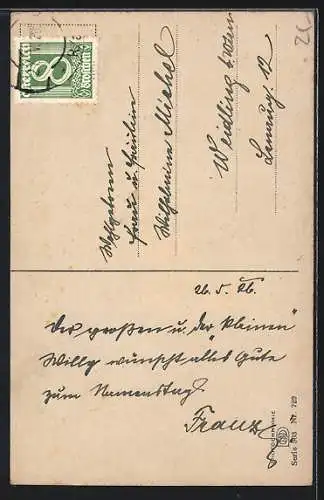 Österreich
8
Groschen
Wohlgeboren
Frau u. Fräulein
Wilhelmine Michal
Weidling b. Wien
12
26. 5. 26.
Der großen u. "der kleinen"
Willy wünscht alles Gute
zum Namenstag.
Franz
Serie 303 Nr. 729